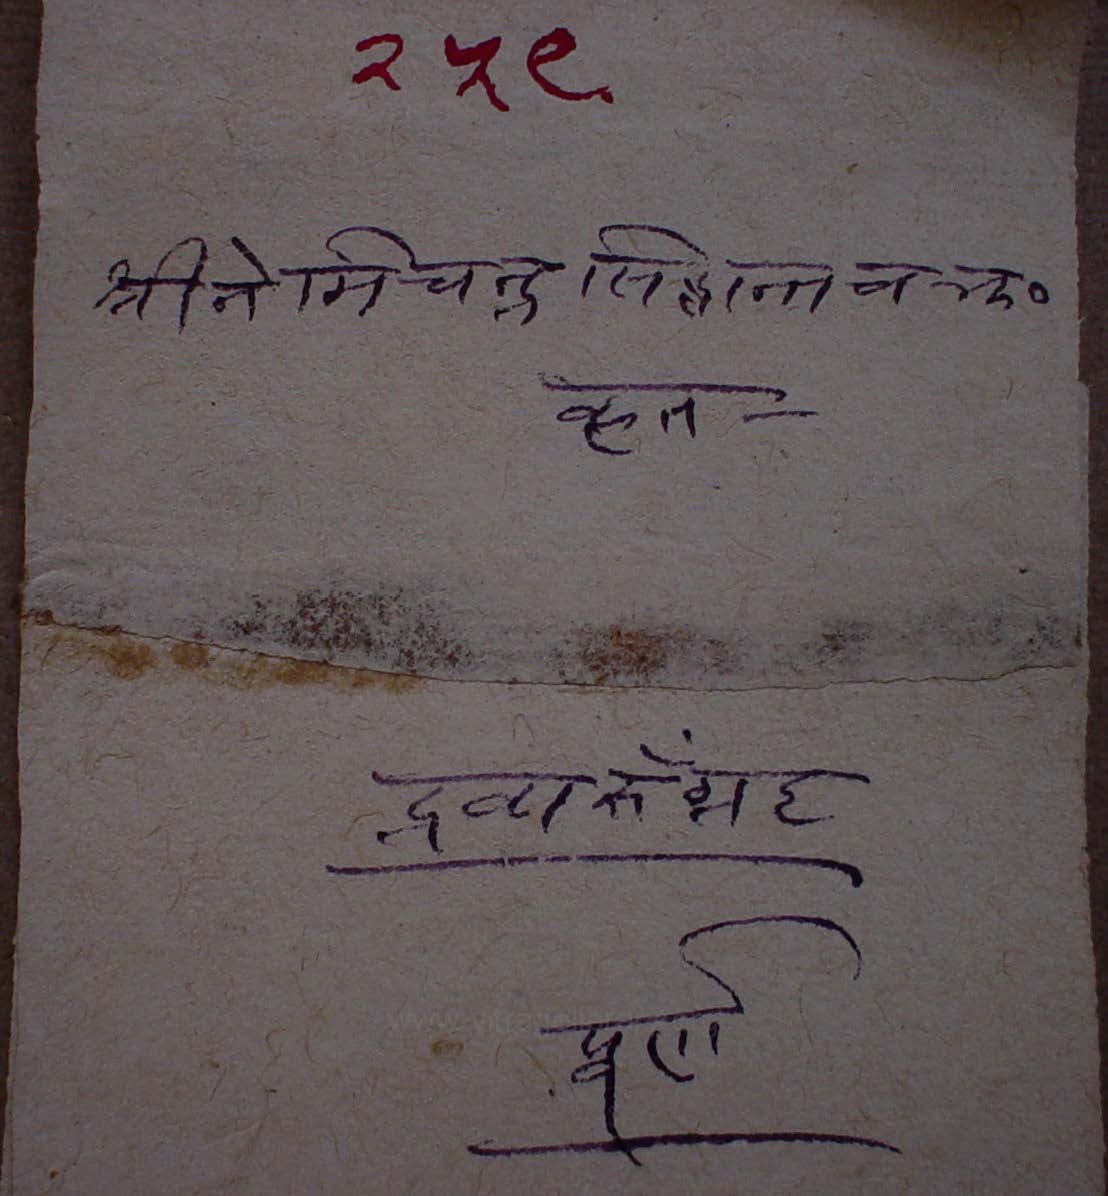 २५९
श्रीनेमिचन्द्र सिद्धान्त च०
कृत -
द्रव्यसंग्रह
पूर्ण